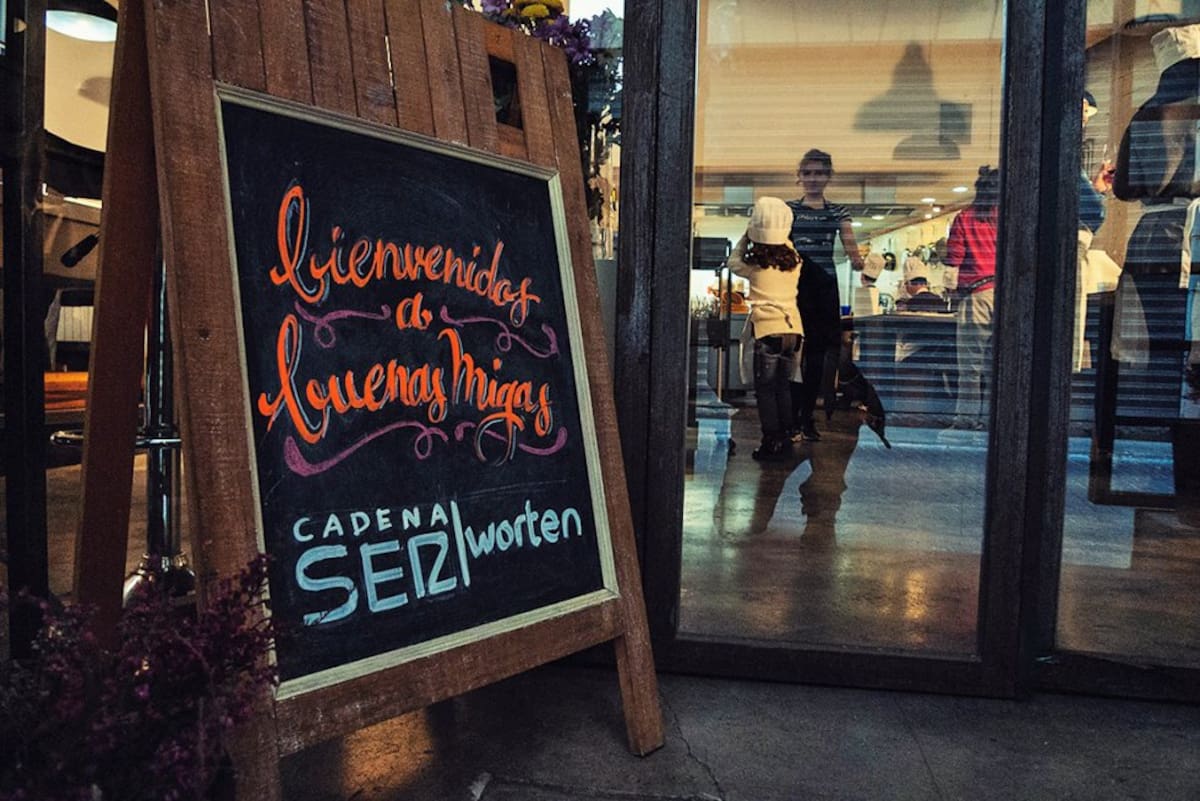 bienvenidos
a
buenas Migas
CADENA
SER | worten